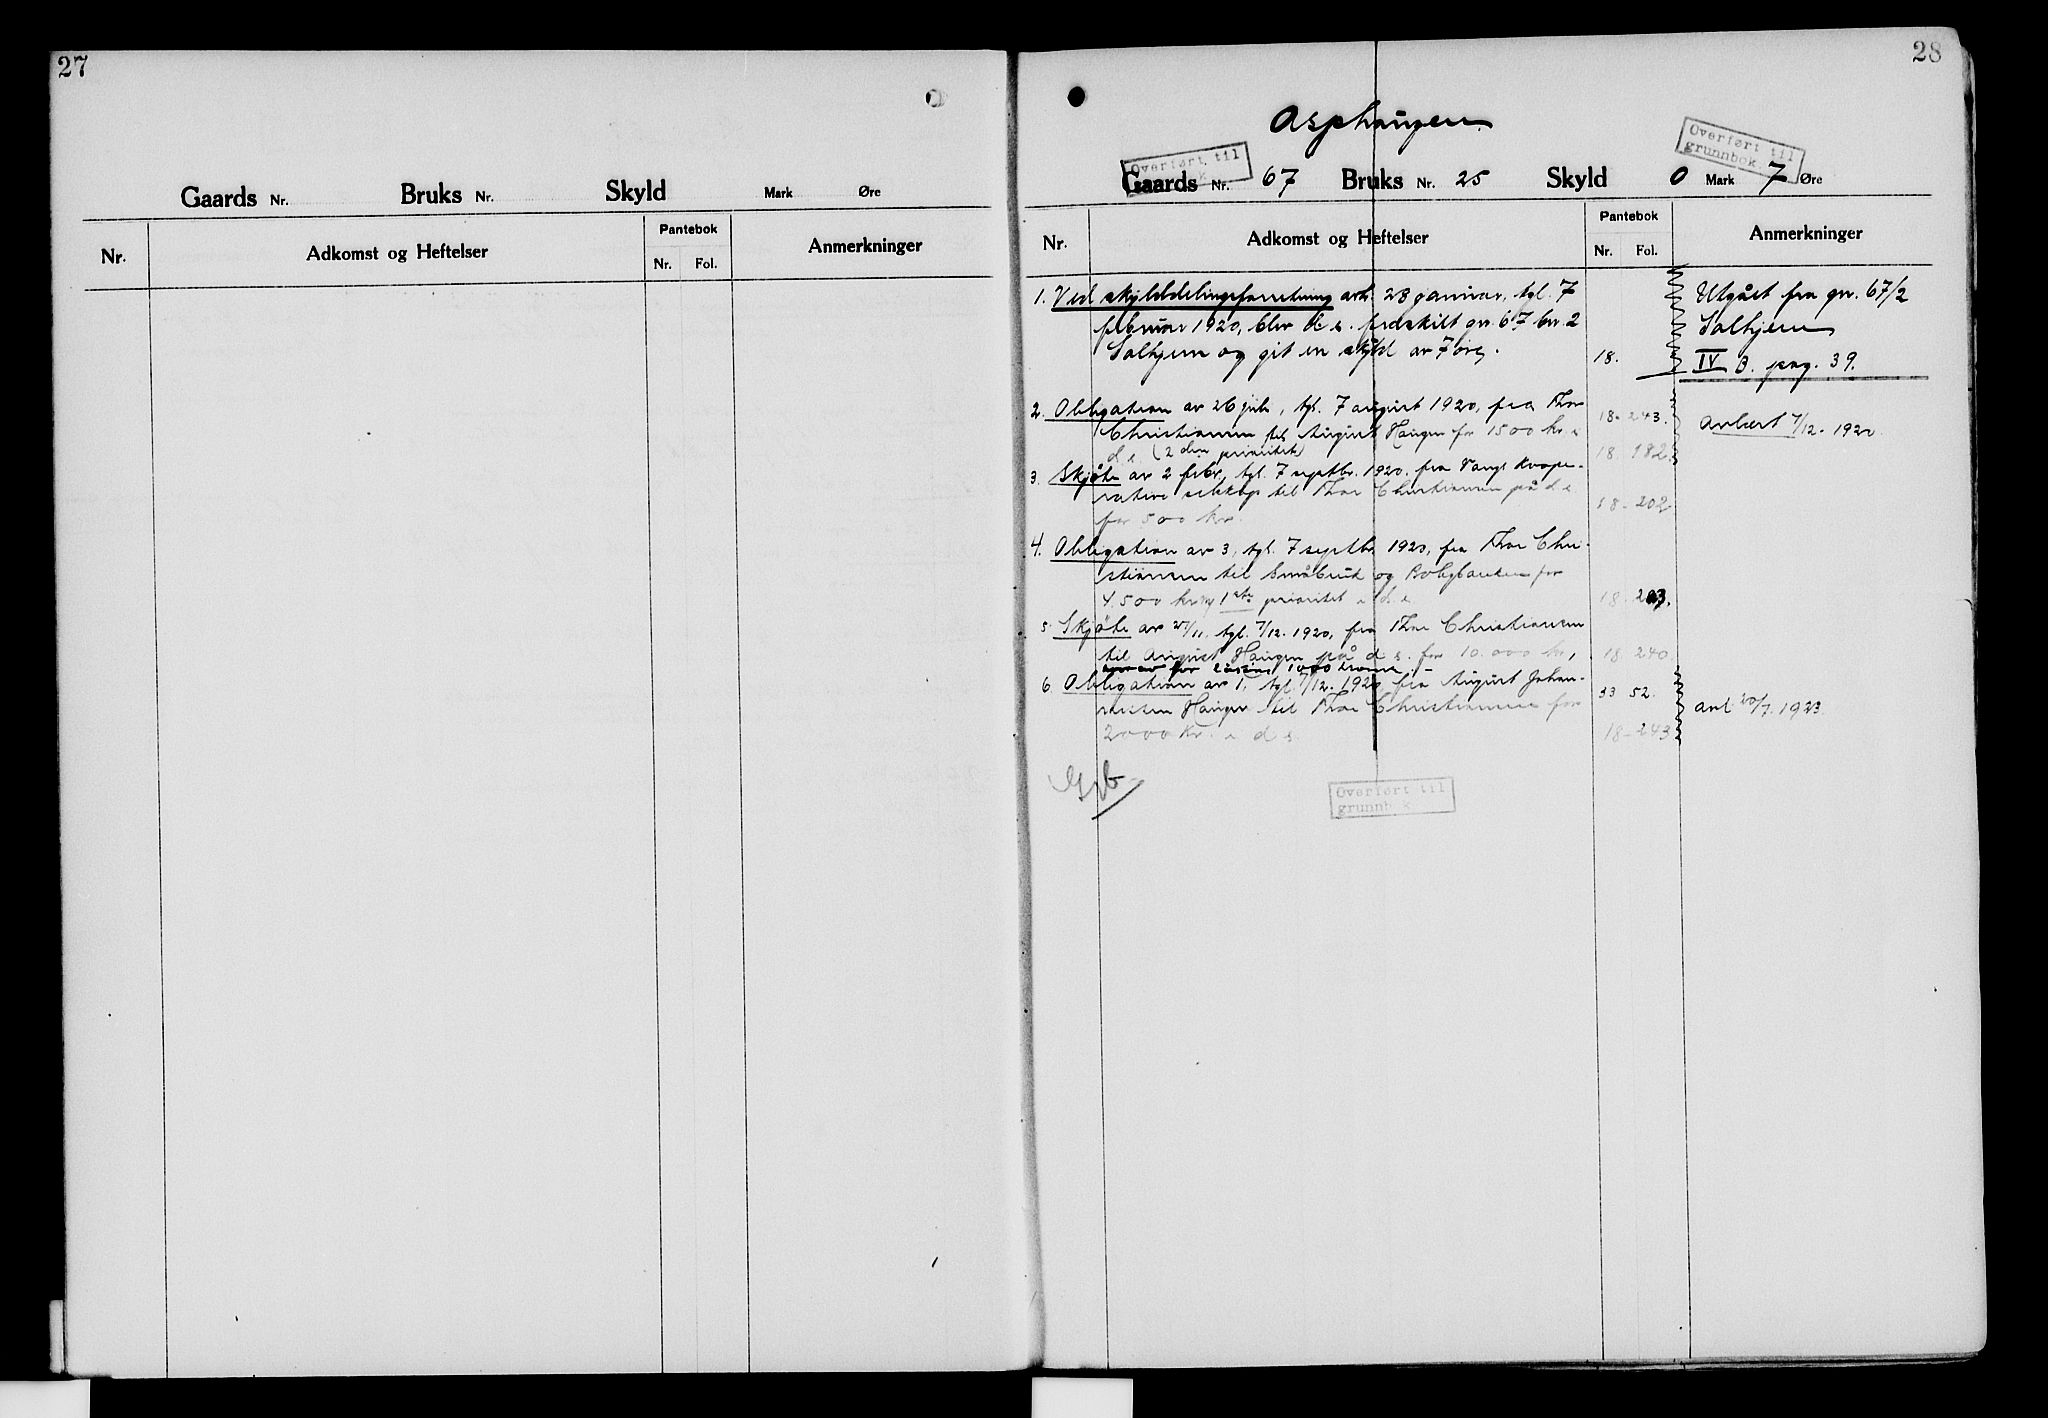 27
Gaards Nr. Bruks Nr. Skyld Mark Øre
Nr. Adkomst og Heftelser Pantebok Nr. Fol. Anmerkninger
28
Asphaugen
Overført til
Overført til
grunnbok.
Gaards Nr. 67 Bruks Nr. 25 Skyld 0 Mark 7 Øre
Nr. Adkomst og Heftelser Pantebok Nr. Fol. Anmerkninger
1. Ved skylddelingsforretning avh. 28 januar, tgl. 7
februar 1920, blev d. e. fraskilt gnr. 67 bnr. 2
Solhjem og git en skyld av 7 øre. 18.
Utgået fra gnr. 67/2
Solhjem
IV B. pag. 39.
2. Obligation av 26 juli, tgl. 7 august 1920, fra Thor 18-243.
Christiansen til August Haugen for 1500 kr. i
d. e. (2 den prioritet) 18 182.
avlæst 7/12-1920
3. Skjøte av 2 febr., tgl. 7 septbr. 1920. fra Vangs Koope-
rative selskap til Thor Christiansen på d. e
for 500 kr. 18-202
4. Obligation av 3, tgl. 7 septbr 1920, fra Thor Chri-
stiansen til Småbruk og Boligbanken for
4.500 kr mg 1ste prioritet i d. e 18. 203.
5. Skjøte av 27/11, tgl. 7/12. 1920, fra Thor Christiansen
til August Haugen på d. e. for 10.000 kr, 18 240
for løsøre 1000 kroner. -
6. Obligation av 1, tgl. 7/12. 1920 fra August Johan- 33 52.
nessen Haugen til Thor Christiansen for
2000 kr. i d e. 18-243
avl 20/7. 1923
Gjb
Overført til
grunnbok